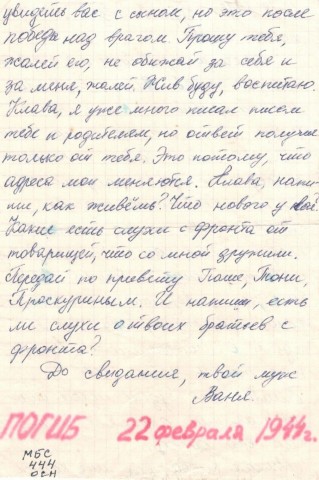 увидеть вас с сыном, но это после
победы над врагом. Прошу тебя,
жалей его, не обижай за себя и
за меня, жалей. Жив буду, воспитаю.
Клава, я уже много писал писем
тебе и родителям, но ответ получил
только от тебя. Это потому, что
адреса мои меняются. Клава, напи-
ши, как живёшь? Что нового у вас?
Какие есть слухи с фронта от
товарищей, что со мной дружили.
Передай по привету Поле, Тони,
Проскуриным. И напиши, есть
ли слухи о твоих братьев с
фронта?
До свидания, твой муж
Ваня.
ПОГИБ 22 февраля 1944г.
МБС
444
ОСН